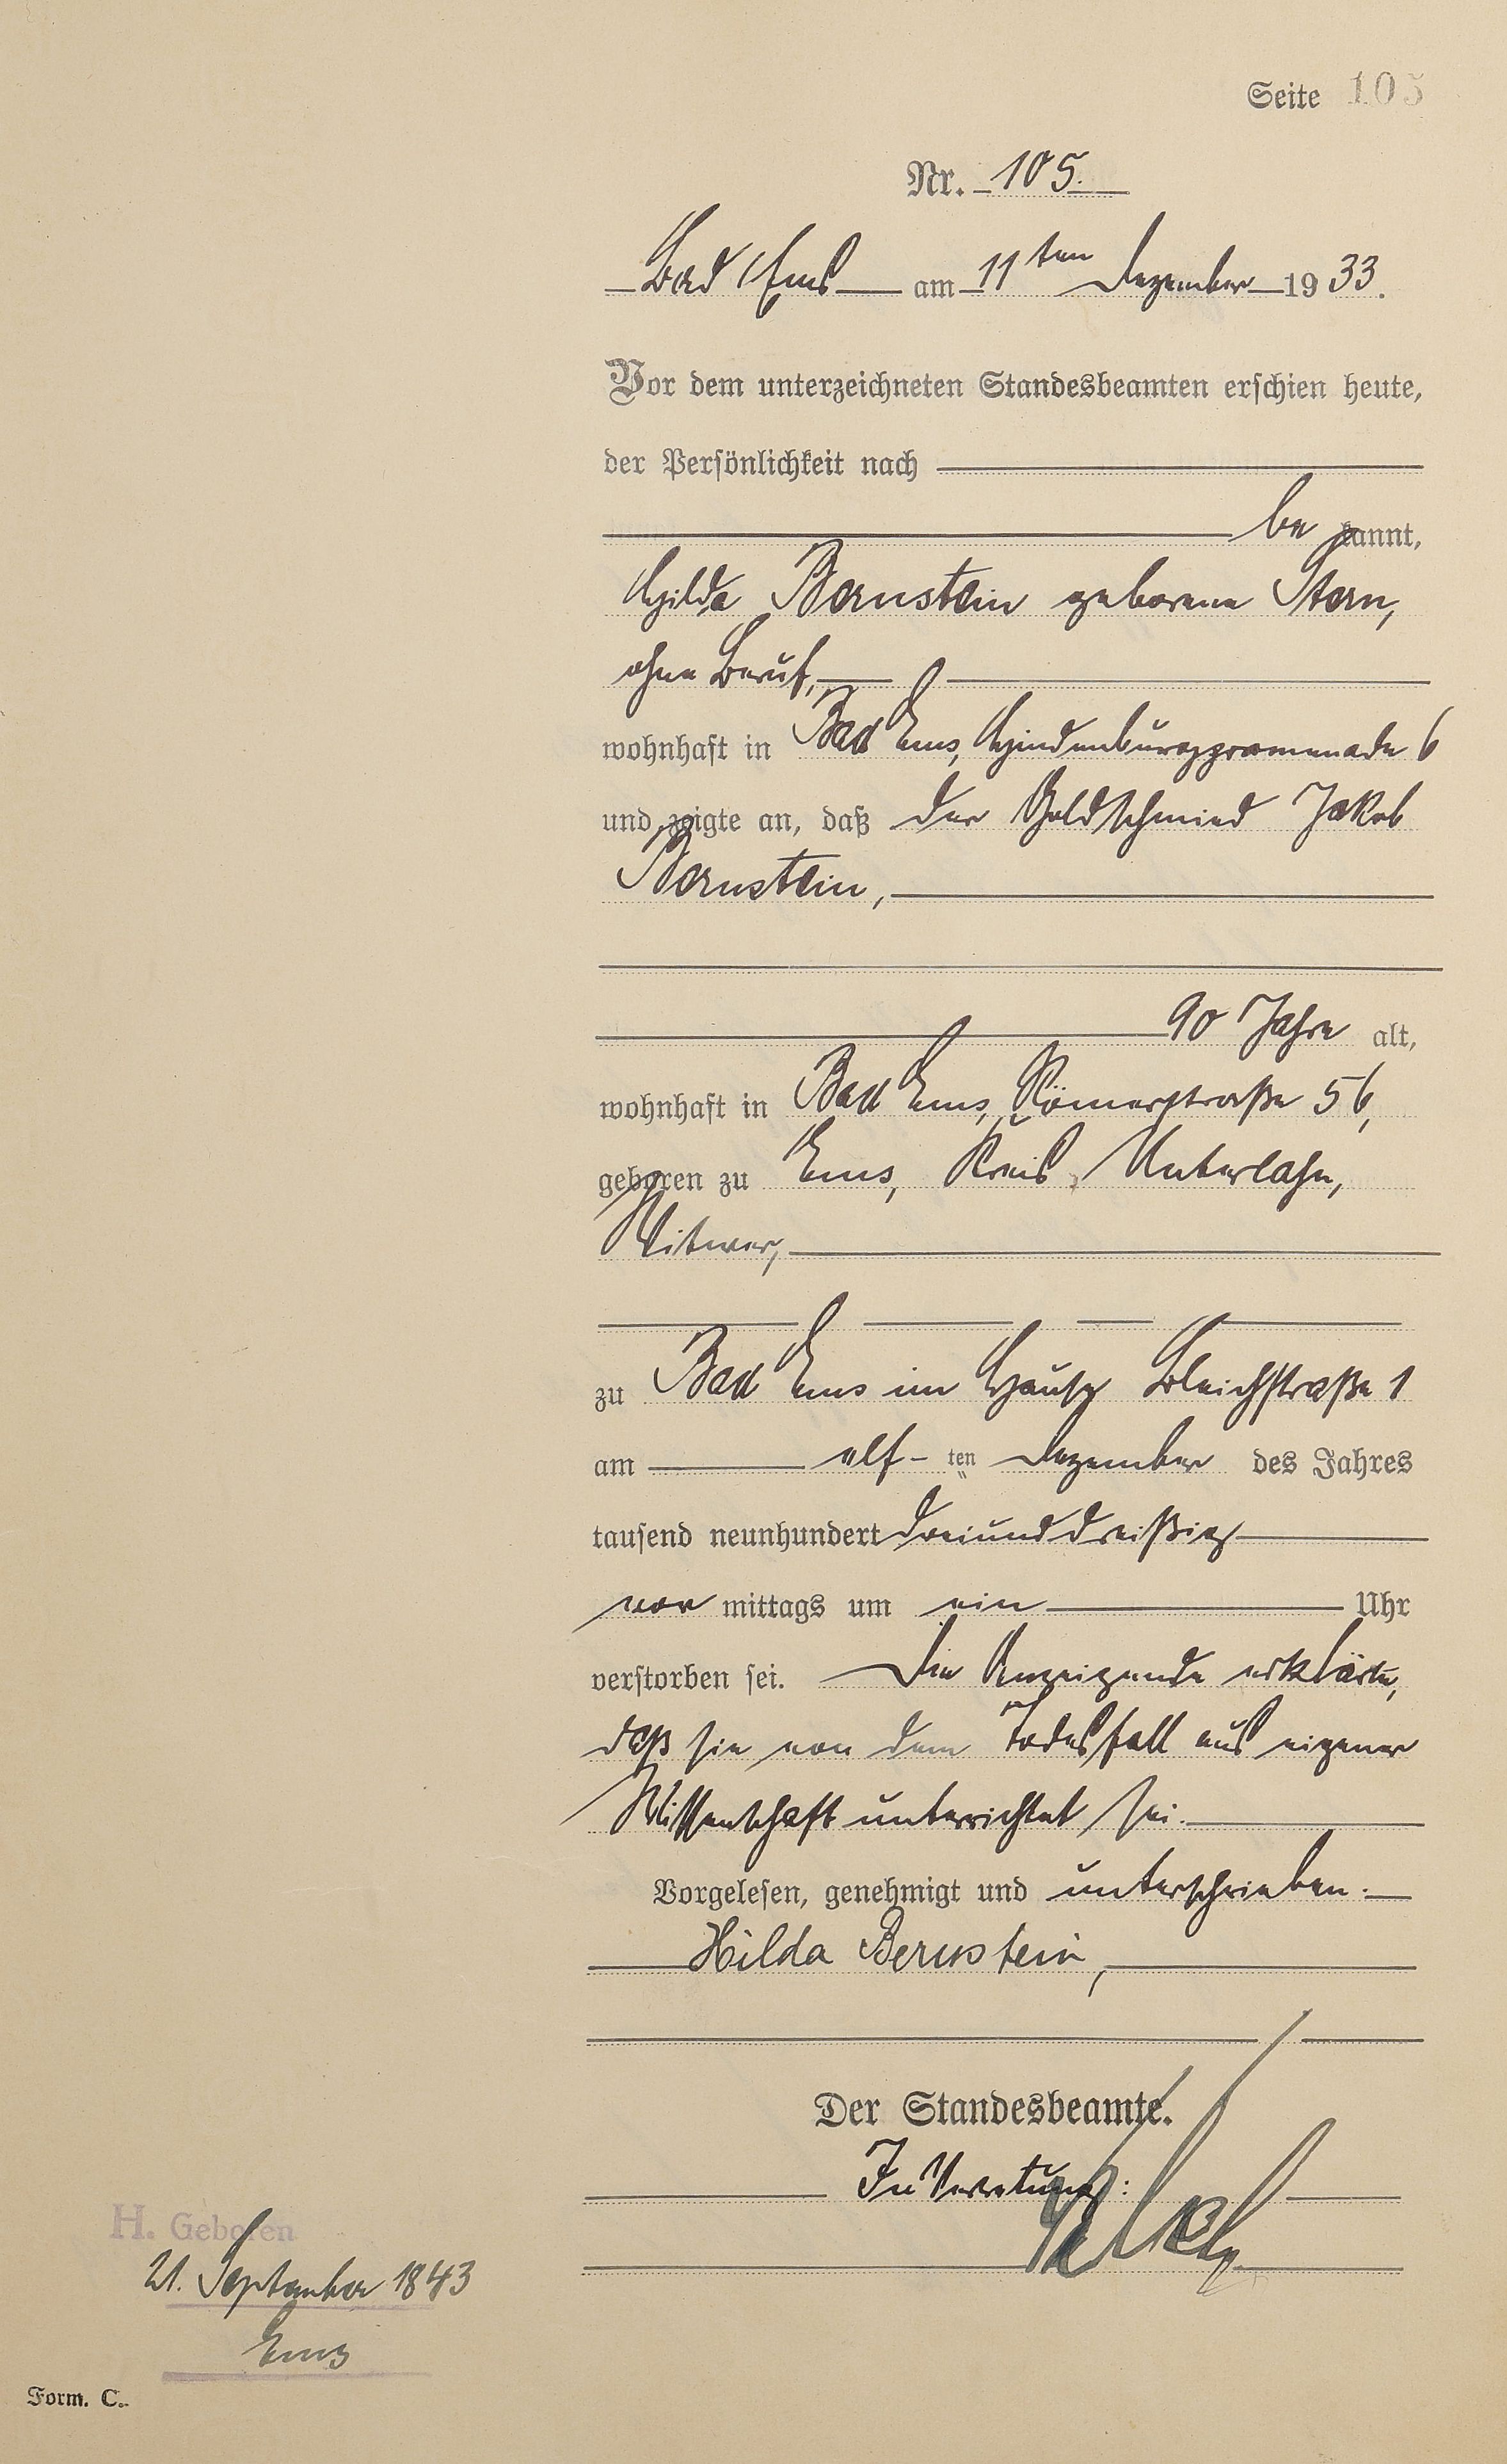 Seite 105
Nr. 105.
Bad Ems am 11ten Dezember 1933.
Vor dem unterzeichneten Standesbeamten erschien heute,
der Persönlichkeit nach
be kannt,
Hilda Bernstein geborene Stern,
ohne Beruf,
wohnhaft in Bad Ems, Hindenburgpromenade 6
und zeigte an, daß der Goldschmied Jakob
Bernstein,
90 Jahre alt,
wohnhaft in Bad Ems, Römerstraße 56,
geboren zu Ems, Kreis Unterlahn,
Witwer,
zu Bad Ems im Hause Bleichstraße 1
am elf-ten Dezember des Jahres
tausend neunhundert dreiunddreißig
vor mittags um ein Uhr
verstorben sei. Die Anzeigende erklärte,
daß sie von dem Todesfall aus eigener
Wissenschaft unterrichtet sei.
Vorgelesen, genehmigt und unterschrieben.
Hilda Bernstein,
Der Standesbeamte.
In Vertretung:
H. Geboren
21. September 1843
Ems
Form. C.